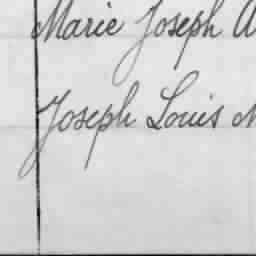 Marie Joseph
Joseph Louis